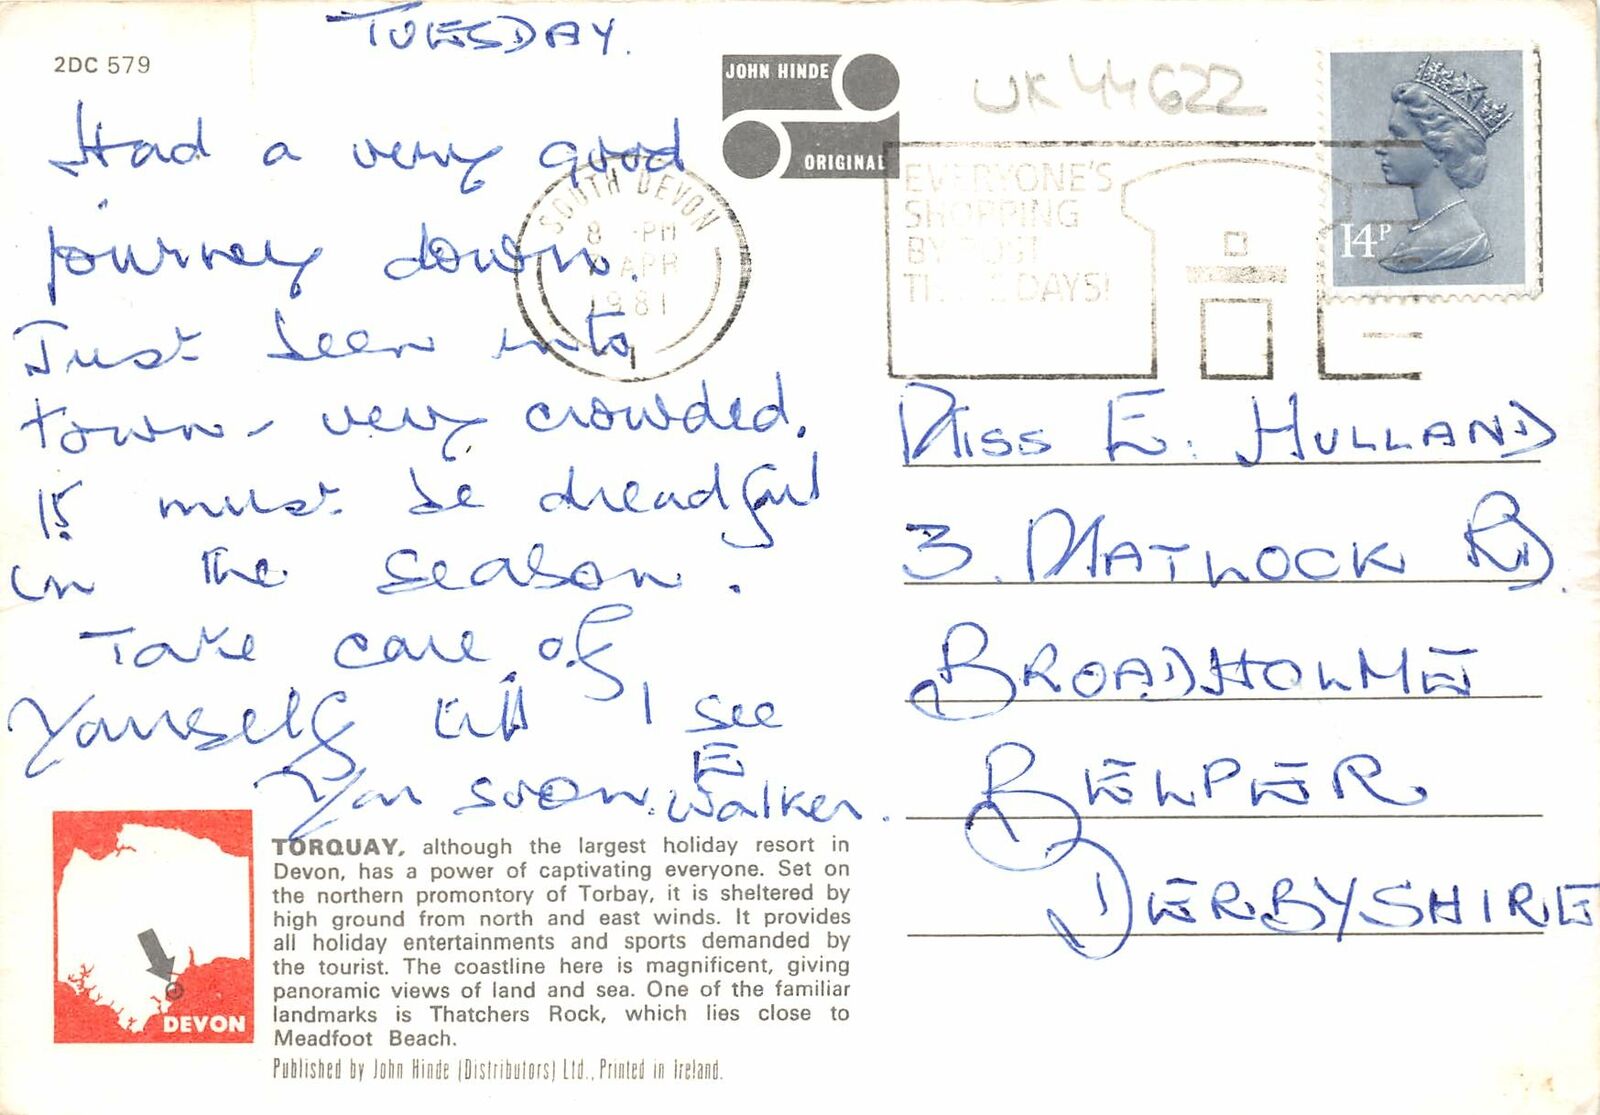 TUESDAY.
2DC 579
Had a very good
journey down.
Just been into
town - very crowded.
It must be dreadful
in the season.
Take care of
yourself till I see
you soon. E Walker.
JOHN HINDE
ORIGINAL
UK 44622
SOUTH DEVON
8 PM
APR
1981
EVERYONE'S
SHOPPING
BY POST
THESE DAYS!
14P
MISS E. HULLAND
3. MATLOCK RD.
BROADHOLME
BELPER
DERBYSHIRE
DEVON
TORQUAY, although the largest holiday resort in
Devon, has a power of captivating everyone. Set on
the northern promontory of Torbay, it is sheltered by
high ground from north and east winds. It provides
all holiday entertainments and sports demanded by
the tourist. The coastline here is magnificent, giving
panoramic views of land and sea. One of the familiar
landmarks is Thatchers Rock, which lies close to
Meadfoot Beach.
Published by John Hinde (Distributors) Ltd., Printed in Ireland.